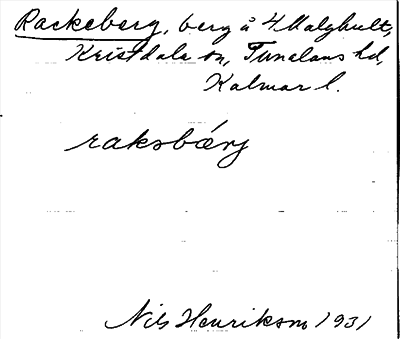 Rackeberg, berg å Malghult,
Kristdala sn, Tunaläns hd,
Kalmar l.
raksbærj
Nils Henrikson 1931